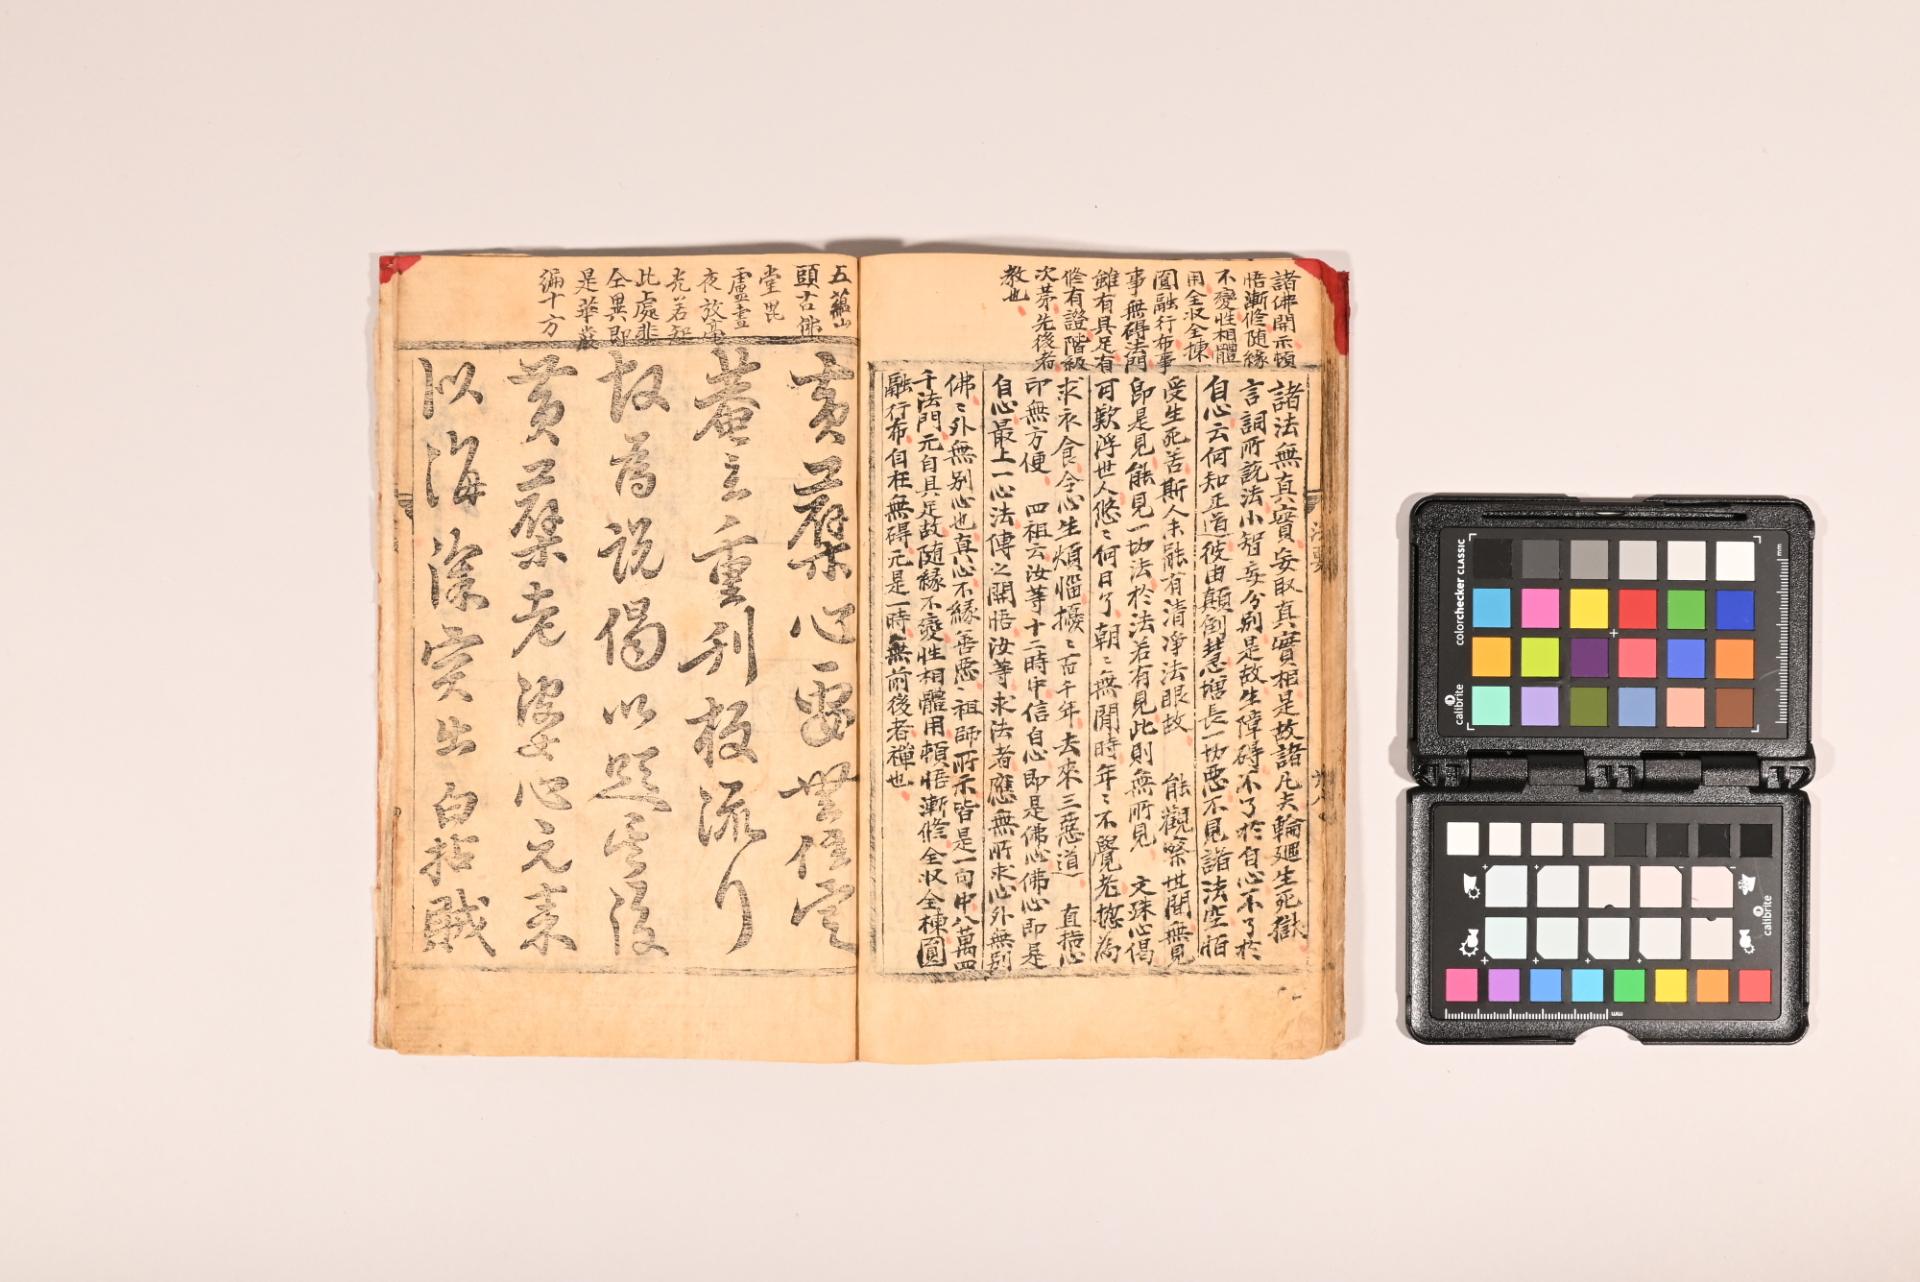 諸佛開示頓
悟漸修随縁
不變性相體
用全收全揀
圓融行布事
事無碍法門
雖有具足有
修有證階級
次苐先後者
教也
諸法無真實妄取真實相是故諸凡夫輪廻生死獄
言詞所說法小智妄分別是故生障碍不了於自心不了於
自心云何知正道彼由顛倒慧增長一切惡不見諸法空恒
受生死苦斯人未能有清淨法眼故 能觀察世間無見
即是見能見一切法於法若有見此則無所見 文殊心偈
可歎浮世人悠〻何日了朝〻無閒時年〻不覺老揔為
求衣食令心生煩惱擾〻百千年去來三惡道 直指心
印無方便 四祖云汝等十二時中信自心即是佛心佛心即是
自心最上一心法傳之開悟汝等求法者應無所求心外無別
佛〻外無別心也真心不縁善惡〻祖師所示皆是一句中八萬四
千法門元自具足故随縁不變性相體用頓悟漸修全收全揀圓
融行布自在無碍元是一時無前後者禪也
法要
五蘊山
頭古佛
堂毘
盧晝
夜放毫
光若知
此處非
仝異即
是華嚴
徧十方
黄蘗心要無住
菴主重刊板流行
故爲說偈以題其後
黄蘗老婆心元來
似海深突出白拈賊
colorchecker CLASSIC
calibrite
mm
calibrite
mm